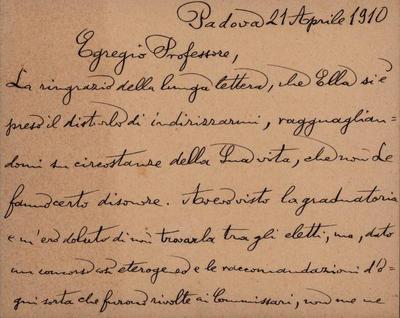 Padova 21 Aprile 1910
Egregio Professore,
La ringrazio della lunga lettera, che Ella si è
preso il disturbo di indirizzarmi, ragguaglian-
domi su circostanze della Sua vita, che non Le
fanno certo disonore. Avevo visto la graduatoria
e m'ero doluto di non trovarla tra gli eletti, ma, dato
un concorso così eterogeneo e le raccomandazioni d'o-
gni sorta che furono rivolte ai Commissari, non me ne